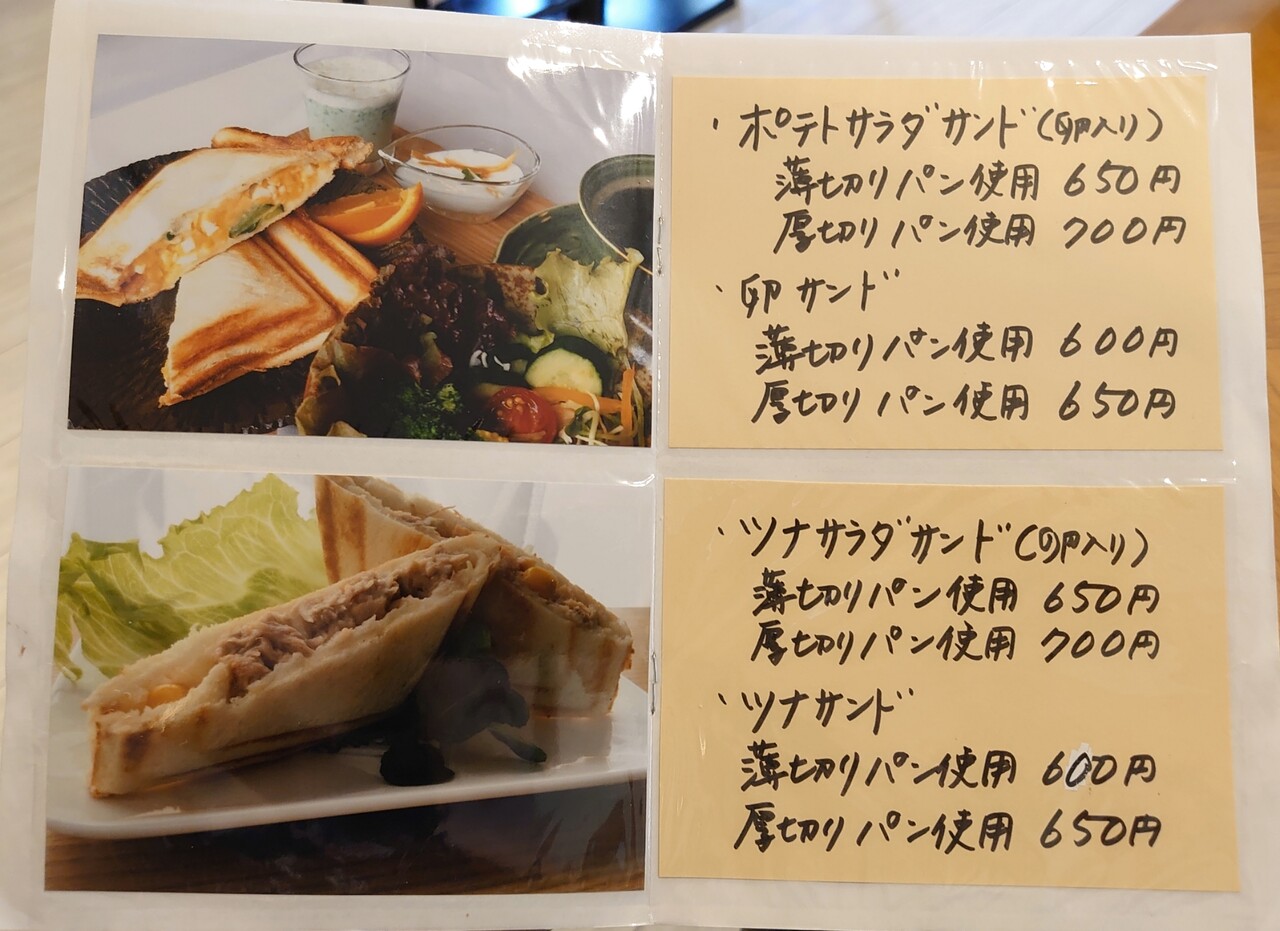 ・ポテトサラダサンド(卵入り)
薄切りパン使用 650円
厚切りパン使用 700円
・卵サンド
薄切りパン使用 600円
厚切りパン使用 650円
・ツナサラダサンド(卵入り)
薄切りパン使用 650円
厚切りパン使用 700円
・ツナサンド
薄切りパン使用 600円
厚切りパン使用 650円